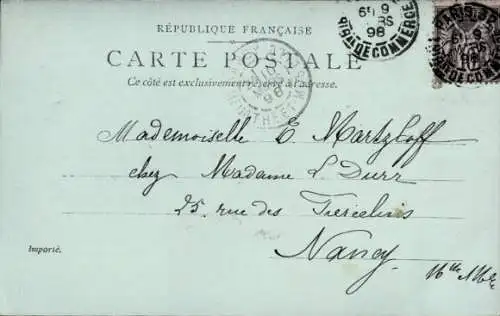 RÉPUBLIQUE FRANÇAISE
CARTE POSTALE
Ce côté est exclusivement réservé à l'adresse.
6E 9
98
DE COMMERCE
PARIS
DE COMMERCE
98
MEURTHE-ET-M
Mademoiselle E. Martzloff
chez Madame L. Durr
25, rue des Tiercelins
Nancy
Importé.
Mthe &